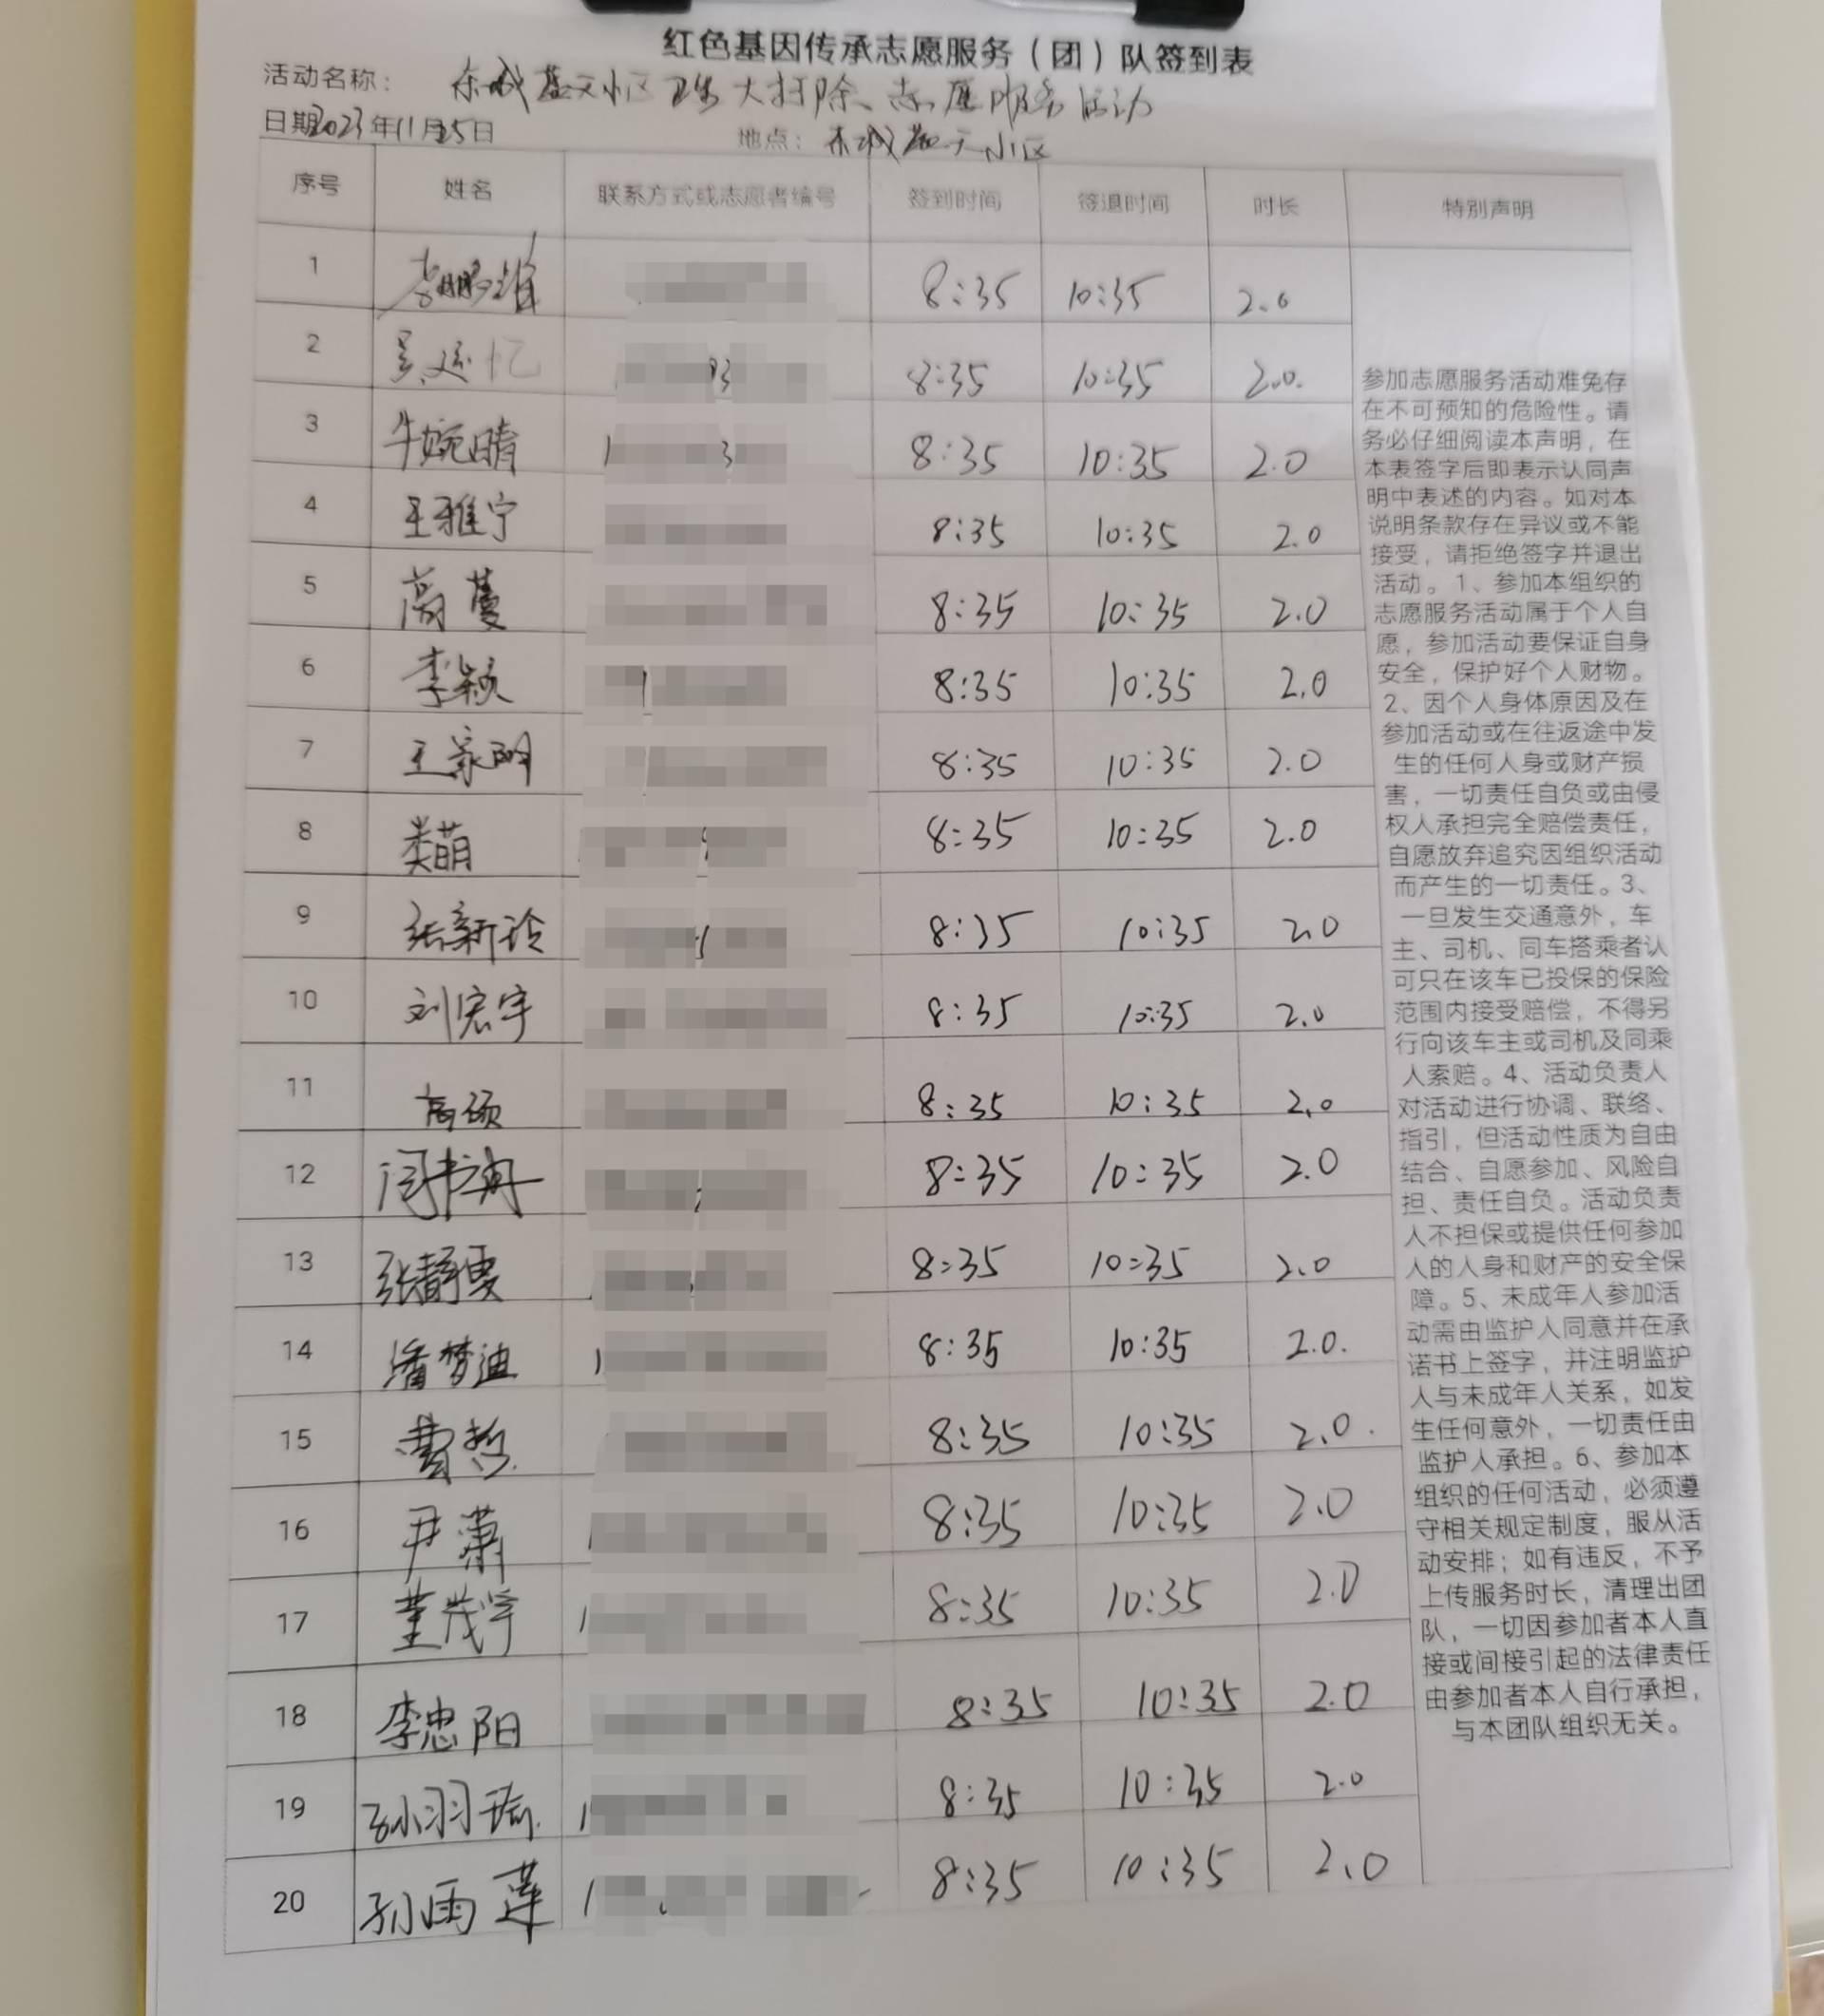 红色基因传承志愿服务（团）队签到表
活动名称： 东城蓝天小区卫生大扫除、志愿服务活动
日期2023年11月25日 地点：东城蓝天小区
序号 姓名 联系方式或志愿者编号 签到时间 签退时间 时长 特别声明
1 8:35 10:35 2.0
2 8:35 10:35 2.0.
3 牛婉晴 8:35 10:35 2.0
4 王雅宁 8:35 10:35 2.0
5 蔺蔓 8:35 10:35 2.0
6 李颖 8:35 10:35 2.0
7 王家明 8:35 10:35 2.0
8 娄萌 8:35 10:35 2.0
9 张新玲 8:35 10:35 2.0
10 刘宏宇 8:35 10:35 2.0
11 高硕 8:35 10:35 2.0
12 闫书冉 8:35 10:35 2.0
13 张静雯 8:35 10:35 2.0
14 潘梦迪 8:35 10:35 2.0.
15 曹哲 8:35 10:35 2.0.
16 尹萧 8:35 10:35 2.0
17 董茂宇 8:35 10:35 2.0
18 李忠阳 8:35 10:35 2.0
19 孙羽瑜 8:35 10:35 2.0
20 孙雨莲 8:35 10:35 2.0
参加志愿服务活动难免存
在不可预知的危险性。请
务必仔细阅读本声明，在
本表签字后即表示认同声
明中表述的内容。如对本
说明条款存在异议或不能
接受，请拒绝签字并退出
活动。1、参加本组织的
志愿服务活动属于个人自
愿，参加活动要保证自身
安全，保护好个人财物。
2、因个人身体原因及在
参加活动或在往返途中发
生的任何人身或财产损
害，一切责任自负或由侵
权人承担完全赔偿责任，
自愿放弃追究因组织活动
而产生的一切责任。3、
一旦发生交通意外，车
主、司机、同车搭乘者认
可只在该车已投保的保险
范围内接受赔偿，不得另
行向该车主或司机及同乘
人索赔。4、活动负责人
对活动进行协调、联络、
指引，但活动性质为自由
结合、自愿参加、风险自
担、责任自负。活动负责
人不担保或提供任何参加
人的人身和财产的安全保
障。5、未成年人参加活
动需由监护人同意并在承
诺书上签字，并注明监护
人与未成年人关系，如发
生任何意外，一切责任由
监护人承担。6、参加本
组织的任何活动，必须遵
守相关规定制度，服从活
动安排；如有违反，不予
上传服务时长，清理出团
队，一切因参加者本人直
接或间接引起的法律责任
由参加者本人自行承担，
与本团队组织无关。